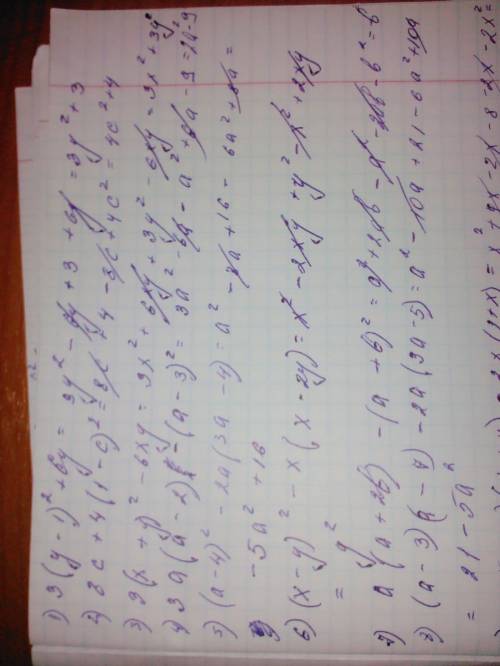 1) 3(y-1)² + 6y = 3y² - 6y + 3 + 6y = 3y² + 3
2) 8c + 4(1-c)² = 8c + 4 - 8c + 4c² = 4c² + 4
3) 3(x+y)² - 6xy = 3x² + 6xy + 3y² - 6xy = 3x² + 3y²
4) 3a(a-2) - (a-3)² = 3a² - 6a - a² + 6a - 9 = 2a - 9
5) (a-4)² - 2a(3a-4) = a² - 8a + 16 - 6a² + 8a =
-5a² + 16
6) (x-y)² - x(x-2y) = x² - 2xy + y² - x² + 2xy
= y²
7) a(a+2b) - (a+b)² = a² + 2ab - a² - 2ab - b² = b
8) (a-3)(a-7) - 2a(3a-5) = a² - 10a + 21 - 6a² + 10a
= 21 - 5a²
2x(1+x) = x² + 4x - 2x - 8 - 2x - 2x² =